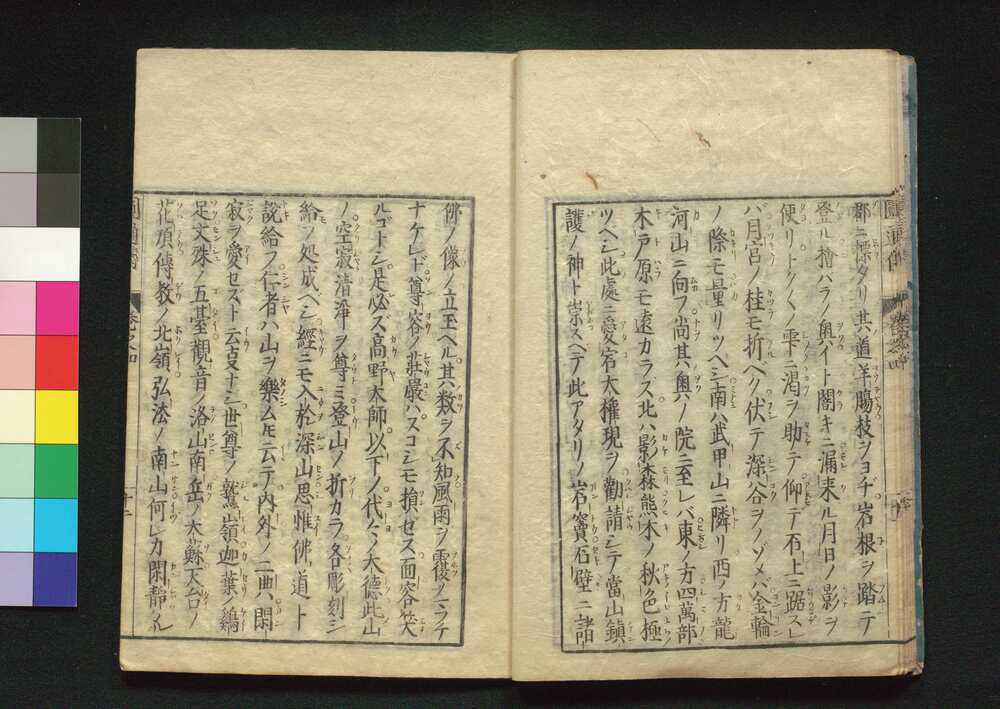 郡ニ標タリ其道羊腸枝ヲヨヂ岩根ヲ踏テ
登ル檜バラノ奥イト闇キニ漏来ル月日ノ影ヲ
便リトク〳〵ノ雫ニ渇ヲ助テ仰テ石上ニ踞スレ
バ月宮ノ桂モ折ヘク伏テ深谷ヲノゾメバ金輪
ノ際モ量リツヘシ南ハ武甲山ニ隣リ西ノ方龍
河山ニ向フ尚其奥ノ院ニ至レバ東ノ方四萬部
木戸原モ遠カラズ北ハ影森熊木ノ秋色極
ツヘシ此處ニ愛宕大権現ヲ勸請シテ當山鎮
護ノ神ト崇スヘテ此アタリノ岩竇石壁ニ諸
佛ノ像ノ立玉ヘル其数ヲ不知風雨ヲ覆ノミテ
ナケレド尊容ノ荘嚴ハスコシモ損セス面容笑
ルゴトシ是必ズ高野大師以下ノ代々ノ大德此山
ノ空寂清淨ヲ尊ミ登山ノ折カラ各彫刻シ
給ノ処成ヘシ經ニモ入於深山思惟佛道ト
說給フ仁者ハ山ヲ樂ムモニテ内外ノ二典閑
寂ヲ愛セズト云支ナシ世尊ノ鷲嶺迦葉ノ鷄
足文殊ノ五臺觀音ノ洛山南岳ノ大蘇天台ノ
花頂傳教ノ北嶺弘法ノ南山何レカ閑靜ナ